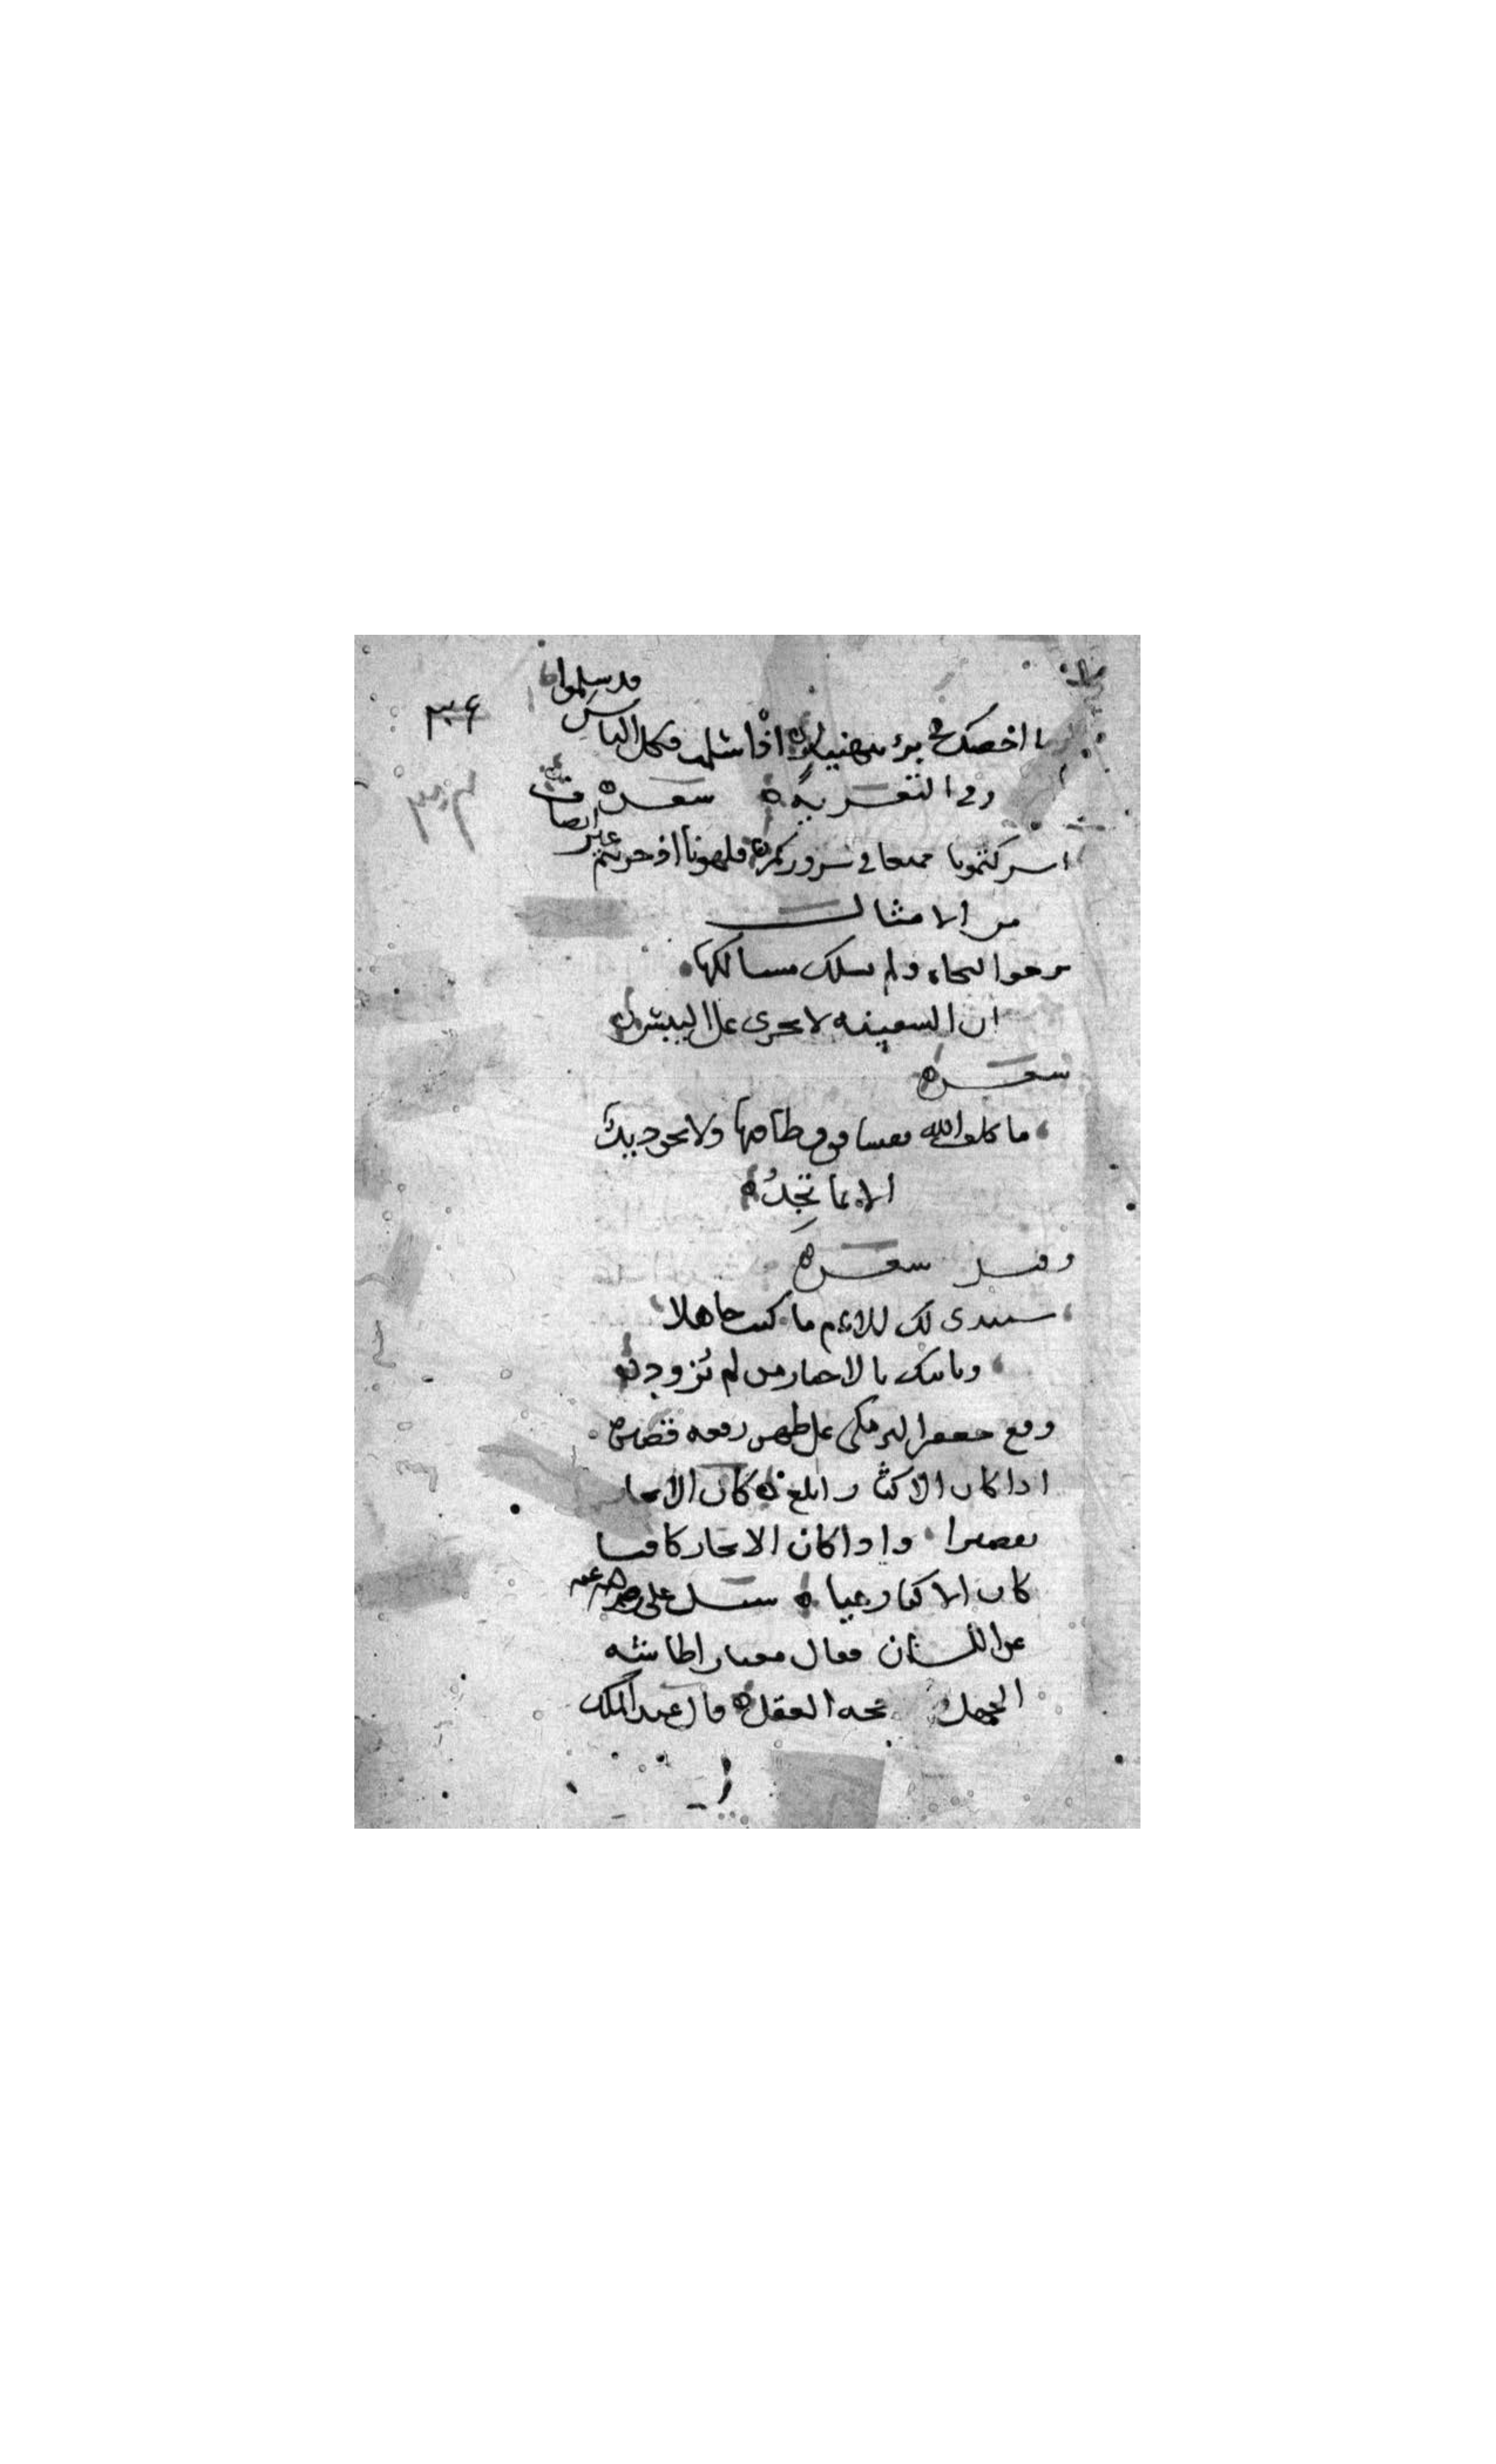 قد سلموا
ما اخصك في برء بتهنية اذا سلمت فكل الناس
وفي التعزية شعر
اشركتمونا جميعا في سروركم فلهونا اذ حزنتم غير انصاف
من الامثال
ترجوا النجاه ولم تسلك مسالكها
ان السفينه لا تجري على اليبس
شعر
ما كلف الله نفسا فوق طاقتها ولا تجود يد
الا بما تجد
شعر
ستبدي لك الايام ما كنت جاهلا
وياتيك بالاخبار من لم تزود
وقع جعفر البرمكي على ظهر رقعه
اذا كان الاكثار ابلغ كان الايجاز
تقصيرا واذا كان الايجاز كافيا
كان الاكثار عيا سئل علي رضي الله عنه
عن اللسان فقال معيار اطاشه
الجهل العقل قال عبد الملك